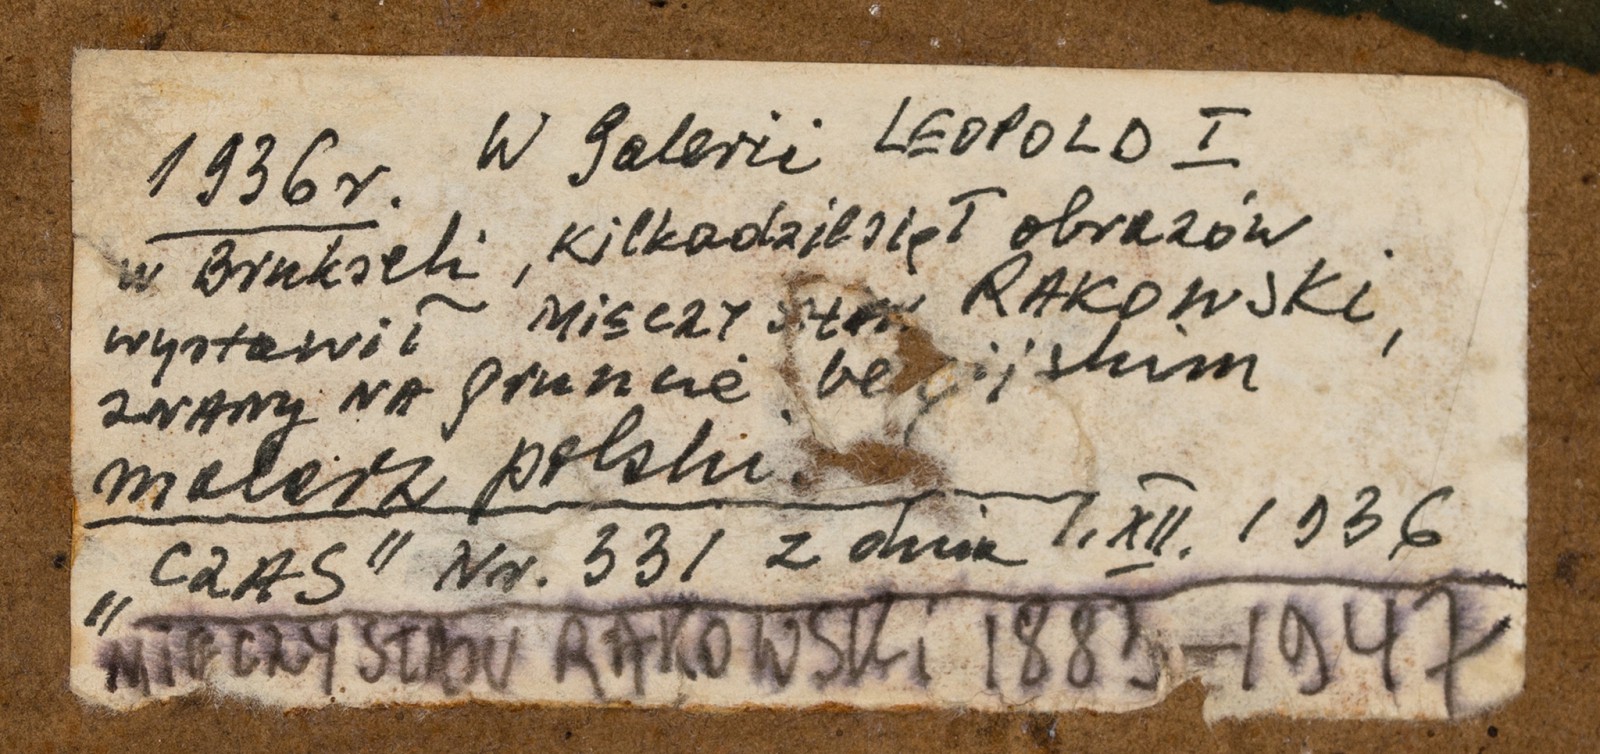 1936r. W Galerii LEOPOLD I
w Brukseli, kilkadziesięT obrazów
wystawił MIECZYSŁAW RAKOWSKi,
zNANy NA gruncie belgijskim
malarz polski.
"CZAS" Nr. 331 z dnia 1.XII. 1936
MIECZYSŁAW RAKOWSKi 1883-1947